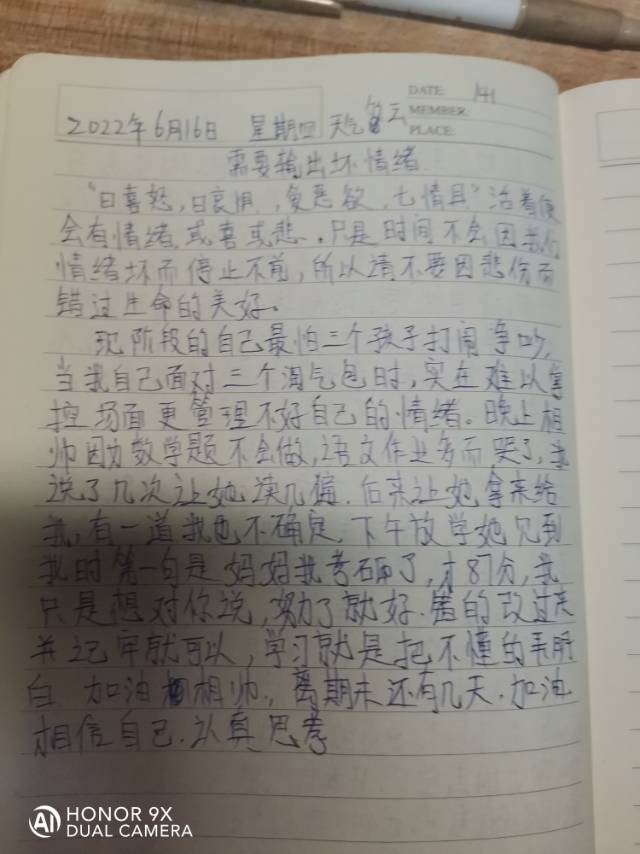 DATE: 141
MEMBER:
PLACE:
2022年6月16日 星期四 天气 多云
需要输出坏情绪
"曰喜怒,曰哀惧,爱恶欲,七情具"活着便
会有情绪,或喜或悲。只是时间不会因我们
情绪坏而停止不前,所以请不要因悲伤而
错过生命的美好。
现阶段的自己最怕三个孩子打闹争吵,
当我自己面对三个淘气包时,实在难以掌
控场面更管理不好自己的情绪。晚上相
帅因为数学题不会做,语文作业多而哭了,我
说了几次让她读几遍.后来让她拿来给
我,有一道我也不确定.下午放学她见到
我时第一句是妈妈我考砸了,才87分,我
只是想对你说,努力了就好.错的改过来
并记牢就可以,学习就是把不懂的弄明
白.加油相帅.,离期末还有几天.加油
相信自己.认真思考
HONOR 9X
DUAL CAMERA